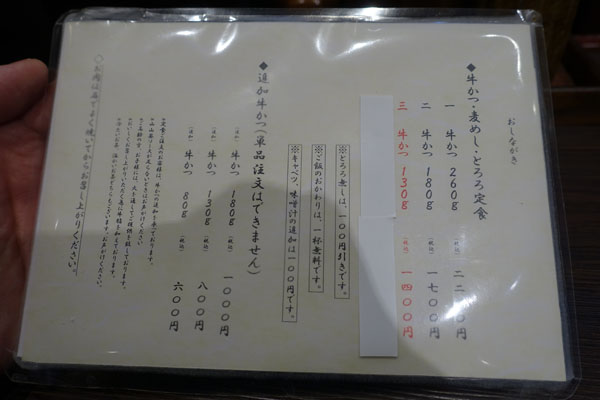 おしながき
◆牛かつ・麦めし・とろろ定食
一 牛かつ 260g (税込) 二二〇〇円
二 牛かつ 180g (税込) 一七〇〇円
三 牛かつ 130g (税込) 一四〇〇円
※とろろ無しは、一〇〇円引きです。
※ご飯のおかわりは、一杯無料です。
※キャベツ、味噌汁の追加は一〇〇円です。
◆追加牛かつ(単品注文はできません)
(追加) 牛かつ 180g (税込) 一〇〇〇円
(追加) 牛かつ 130g (税込) 八〇〇円
(追加) 牛かつ 80g (税込) 六〇〇円
〇お肉は石でよく焼いてからお召し上がりください。